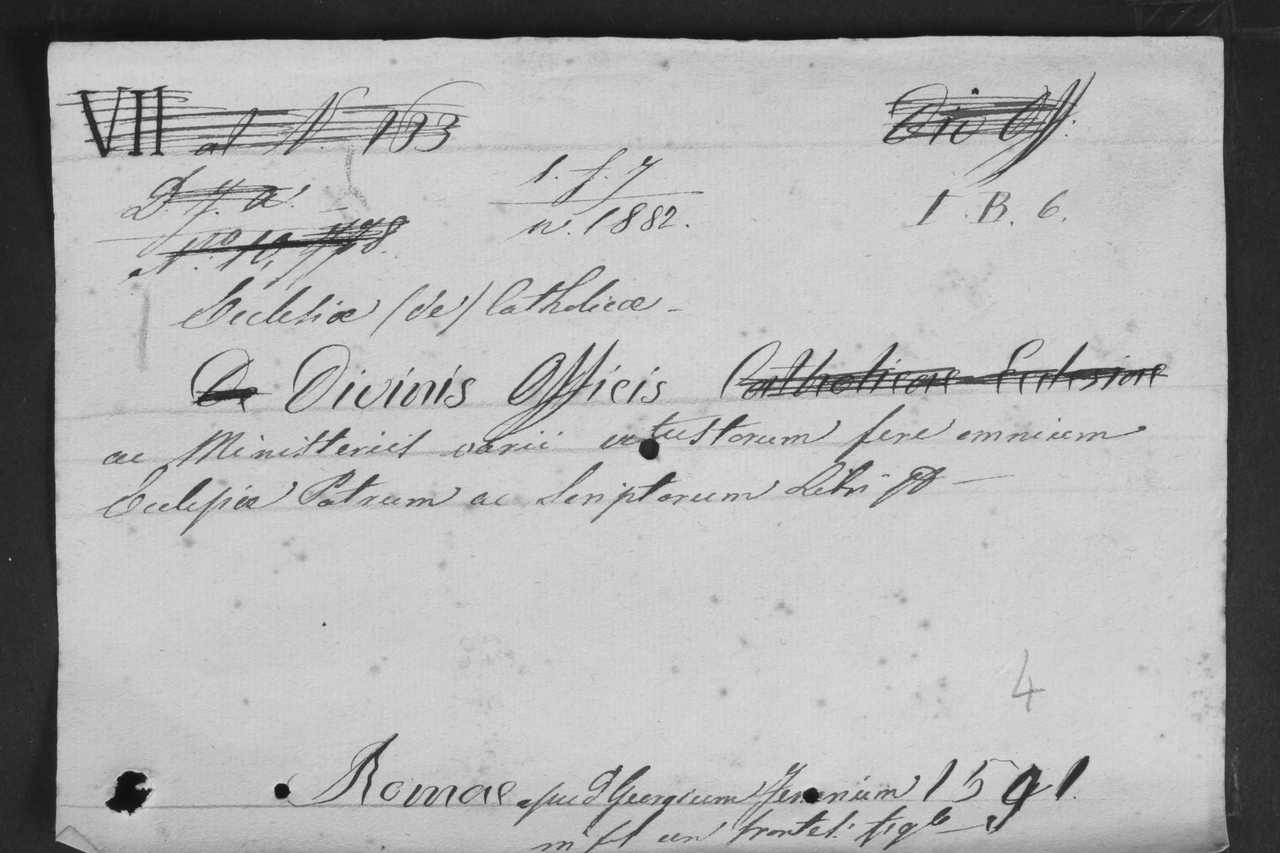 VII al N. 163
Div Off.
D. f. a.
1. f. 7
n. 1882.
I. B. 6.
N.º 10,
Ecclesiæ (de) Catholicæ -
De Divinis Officis Catholicae Ecclesiae
ac Ministeriis varii vetustorum fere omnium
Ecclesiæ Patrum ac Scriptorum Libri
4
Romae apud Georgium 1591.
in fol